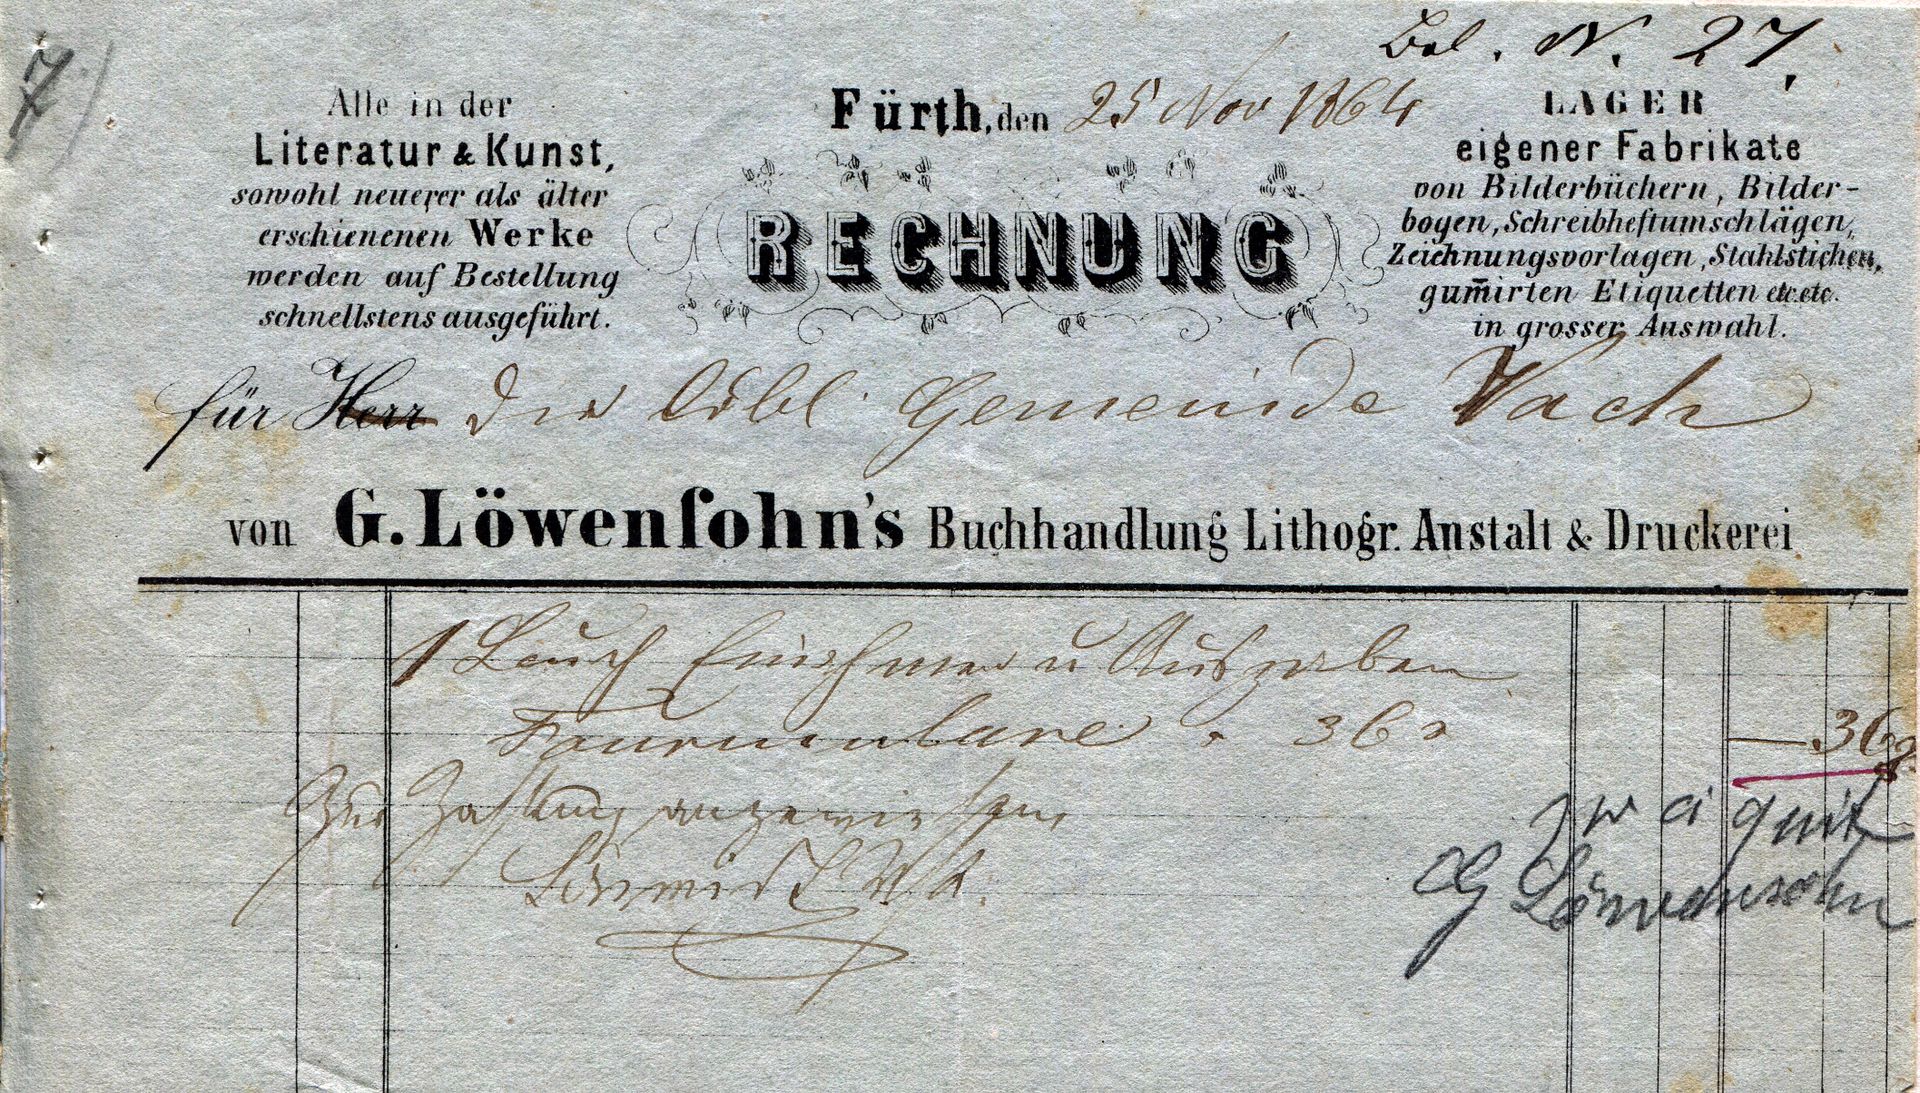 7)
Bel. N. 27.
Alle in der
Literatur & Kunst,
sowohl neuerer als älter
erschienenen Werke
werden auf Bestellung
schnellstens ausgeführt.
Fürth, den 25 Nov 1864
RECHNUNG
LAGER
eigener Fabrikate
von Bilderbüchern, Bilder-
bogen, Schreibheftumschlägen,
Zeichnungsvorlagen, Stahlstichen,
gum̄irten Etiquetten etc. etc.
in grosser Auswahl.
für Herr Die löbl. Gemeinde Vach
von G. Löwenſohn's Buchhandlung Lithogr. Anstalt & Druckerei
1 Buch Einnahme u Ausgaben
Formulare 36
— 36
Zur Zahlung angewiesen
quit
G Löwensohn